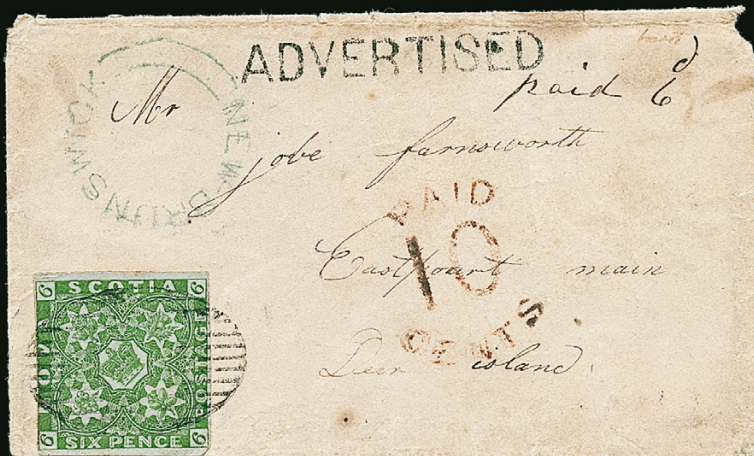 ADVERTISED
paid 6d
NEW-BRUNSWICK
Mr
jobe farnsworth
PAID
10
CENTS
Eastpourt main
Deer island
6 SCOTIA 6
NOVA
POSTAGE
6 SIX PENCE 6